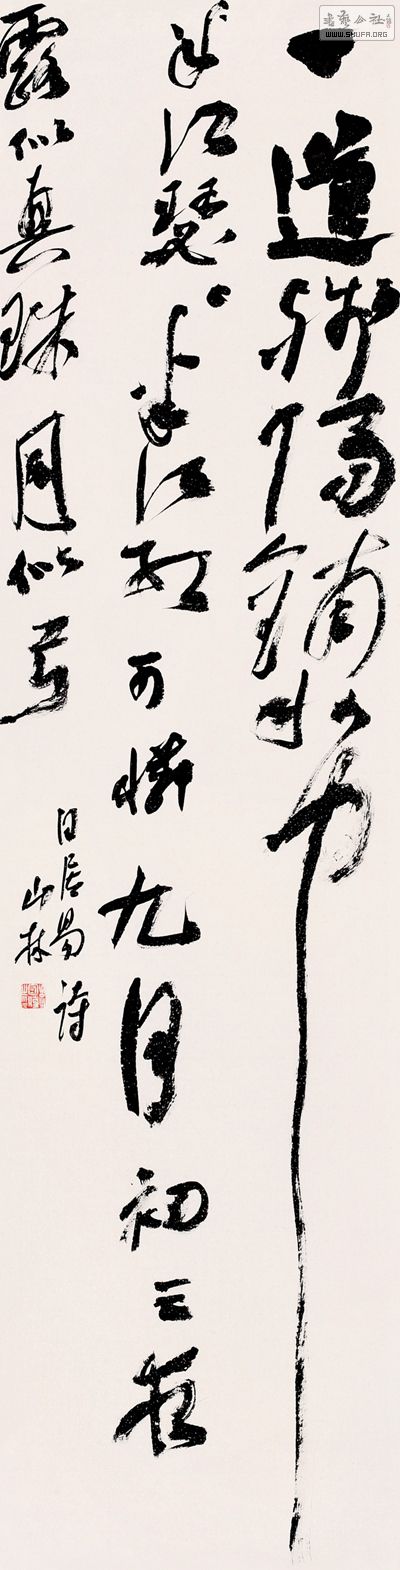 一道殘陽鋪水中
半江瑟々半江紅可憐九月初三夜
露似真珠月似弓
白居易詩
山林
書藝公社
WWW.SHUFA.ORG